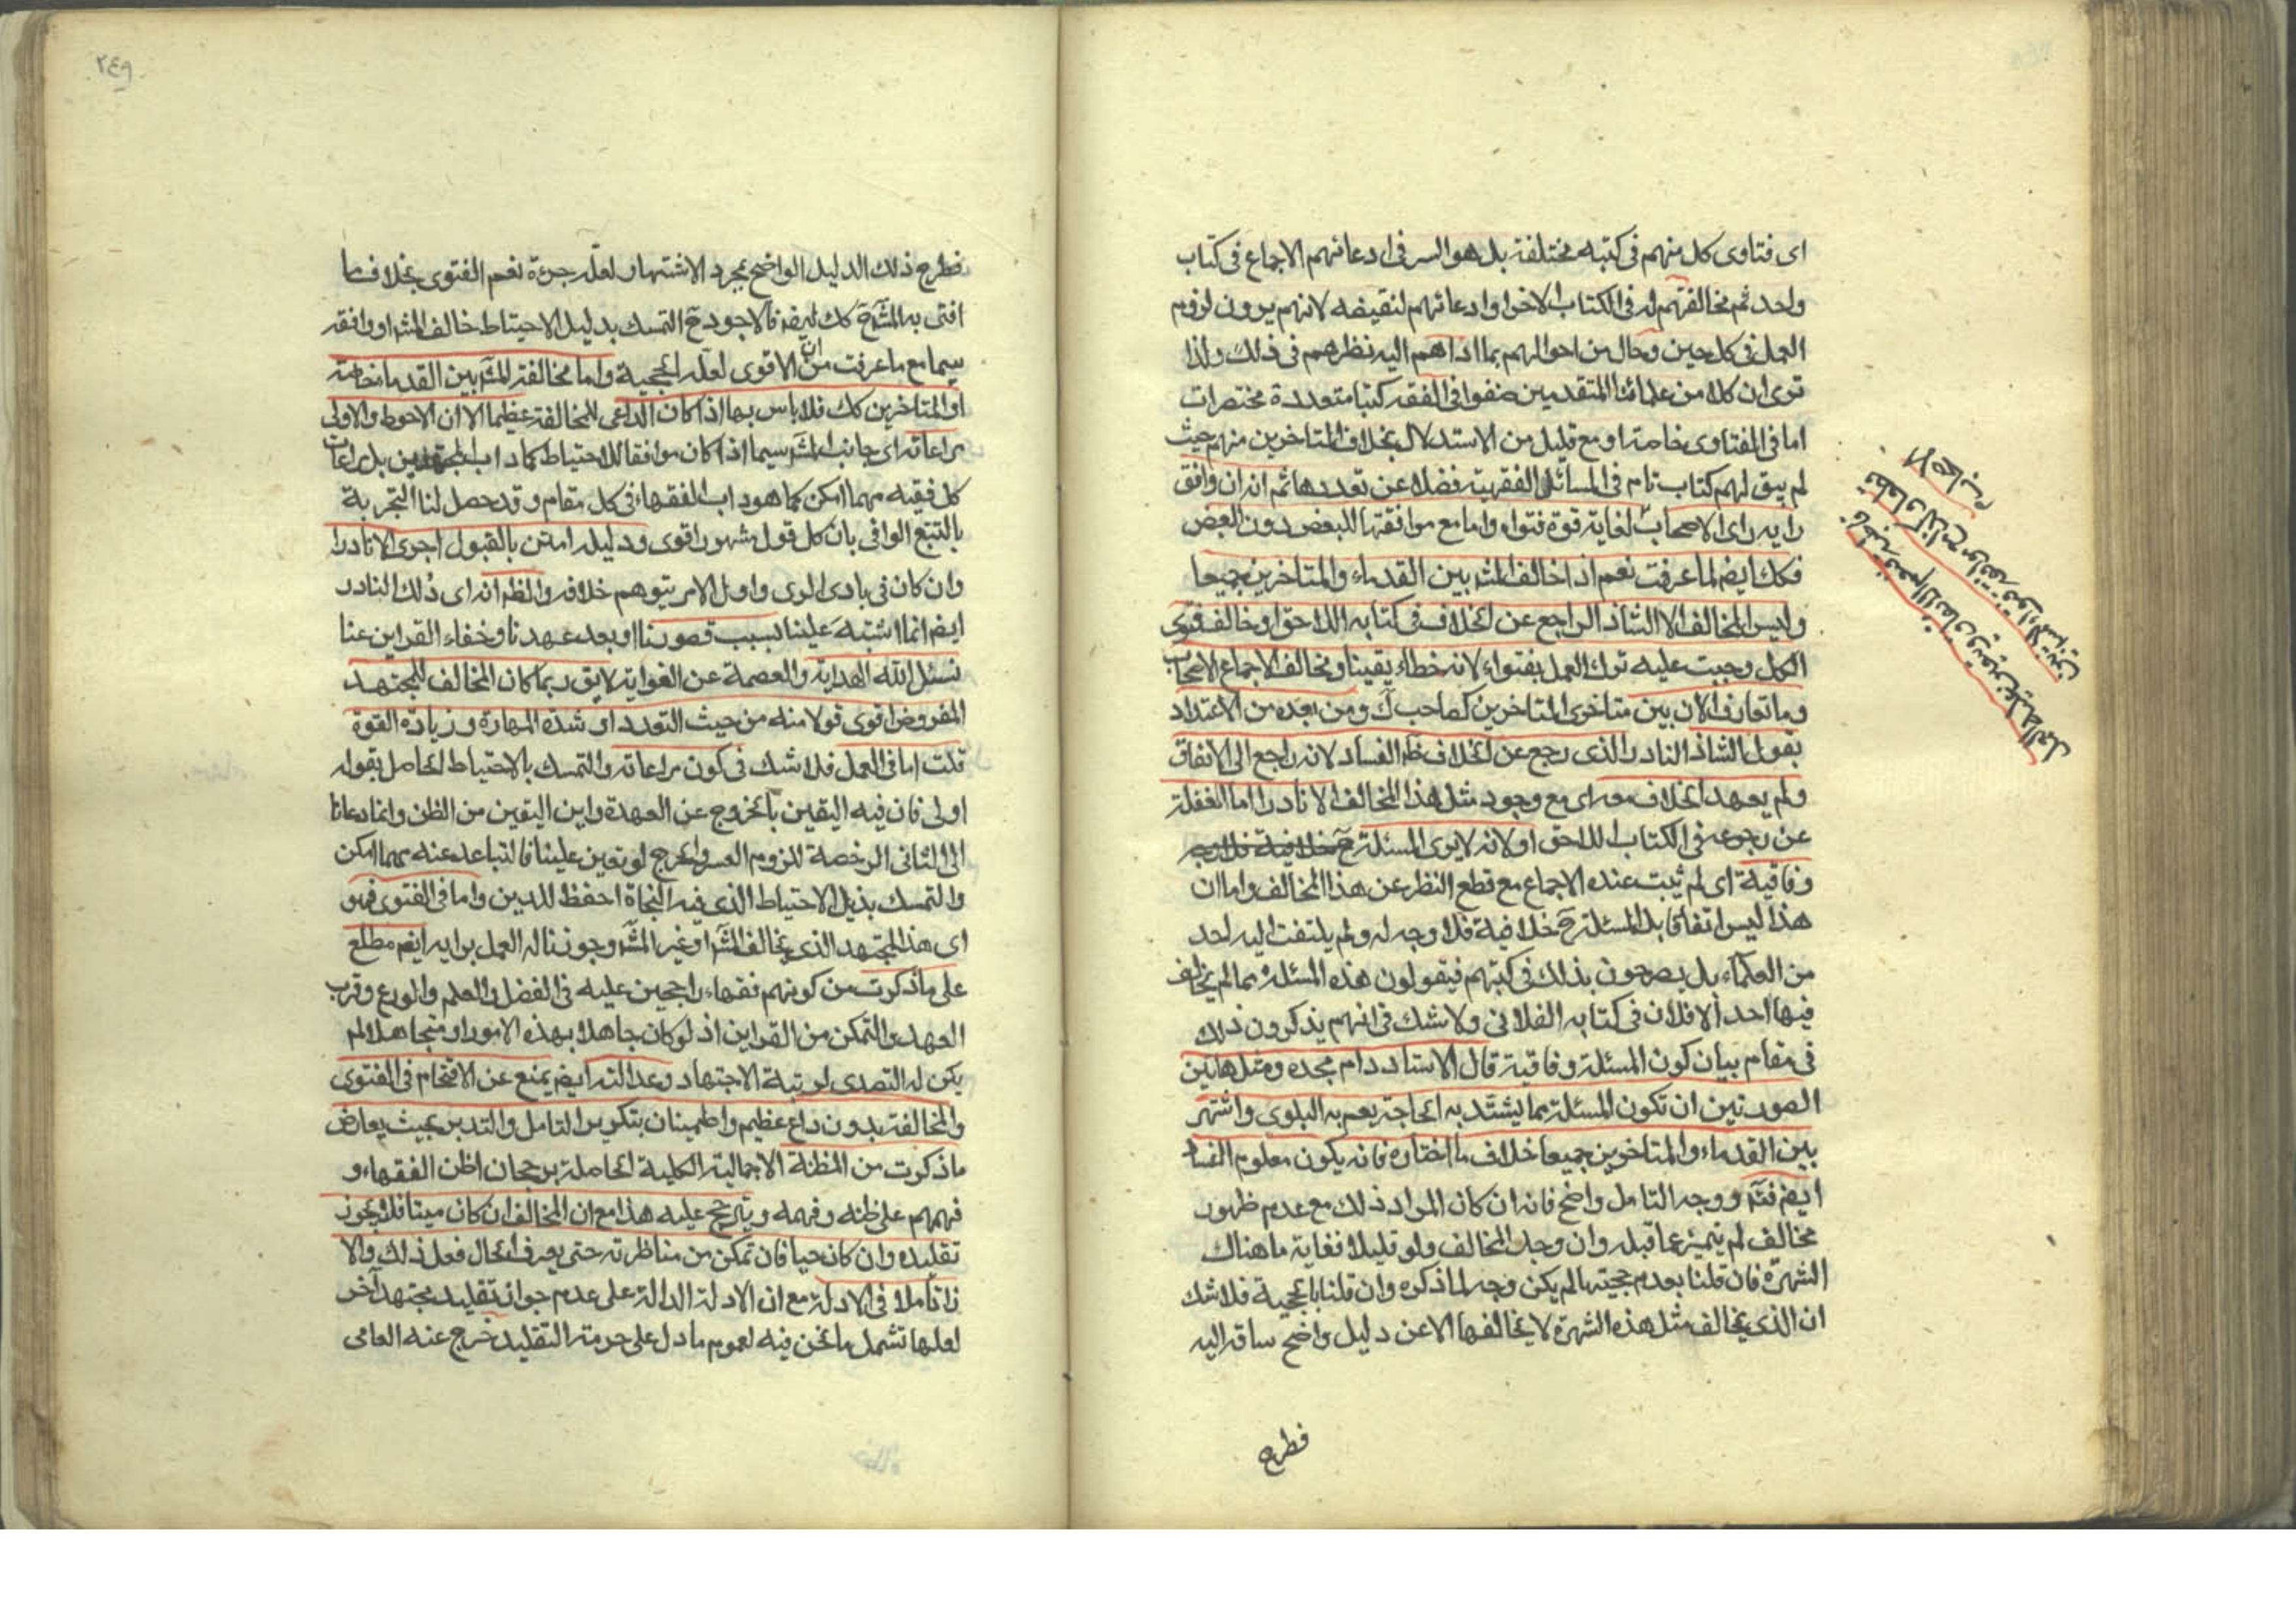 اى فتاوى كل منهم فى كتبه مختلفة بل هو السر فى ادعائهم الاجماع فى كتاب
واحد ثم مخالفتهم له فى الكتاب الاخر او ادعائهم لنقيضه لانهم يرون لزوم
العمل فى كل حين وحال من احوالهم بما اداهم اليه نظرهم فى ذلك ولذا
ترى ان كلا من علمائنا المتقدمين صنفوا فى الفقه كتبا متعددة مختصرات
اما فى الفتاوى خاصة او مع قليل من الاستدلال بخلاف المتاخرين منهم حيث
لم يبق لهم كتاب تام فى المسائل الفقهية فضلا عن تعددها ثم انه ان وافق
رايه راى الاصحاب لغاية قوة فتواه واما مع موافقتها للبعض دون البعض
فكك ايضم لما عرفت نعم اذا خالف المشه بين القدماء والمتاخرين جميعا
وليس المخالف الا الشاذ الراجع عن الخلاف فى كتابه اللاحق او خالف فتوى
الكل وجبت عليه ترك العمل بفتواه لانه خطاء يقينا ومخالف لاجماع الاصحاب
وما تعارف الان بين متاخرى المتاخرين كصاحب ك ومن بعده من الاعتداد
بقول الشاذ النادر الذى رجع عن الخلاف ظم الفساد لانه راجع الى الاتفاق
ولم يعهد الخلاف معه اى مع وجود مثل هذا المخالف الا نادرا اما لغفلة
عن رجوعه فى الكتاب اللاحق او لانه لا يرى المسئلة ح خلافية فلا وجه
وفاقية اى لم ثبت عنده الاجماع مع قطع النظر عن هذا المخالف واما ان
هذا ليس اتفاقا بل المسئلة ح خلافية فلا وجه له ولم يلتفت اليه احد
من العلماء بل يصرحون بذلك فى كتبهم فيقولون هذه المسئلة مما لم يخالف
فيها احد الا فلان فى كتابه الفلانى ولا شك فى انهم يذكرون ذلك
فى مقام بيان كون المسئلة وفاقية قال الاستاد دام مجده ومثل هاتين
الصورتين ان تكون المسئلة مما يشتد به الحاجة يعم به البلوى واشتهر
بين القدماء والمتاخرين جميعا خلاف ما اختاره فانه يكون معلوم الفساد
ايضم فتم ووجه التامل واضح فانه ان كان المراد ذلك مع عدم ظهور
مخالف لم يتميز عما قبله وان وجد المخالف ولو قليلا فغاية ما هناك
الشهرة فان قلنا بعدم حجيتها لم يكن وجه لما ذكره وان قلنا بالحجية فلا شك
ان الذى يخالف مثل هذه الشهرة لا يخالفها الا عن دليل واضح ساقه اليه
فطرح
٢٤٩
فطرح ذلك الدليل الواضح بمجرد الاشتهار لعله جرءة نعم الفتوى بخلاف ما
افتى به المش ح كك ايضم فالاجود ح التمسك بدليل الاحتياط خالف المشه او وافقه
سيما مع ما عرفت من ان الاقوى لعله الحجية واما مخالفة المش بين القدما خاصة
او المتاخرين كك فلا باس بها اذا كان الداعى للمخالفة عظيما الا ان الاحوط والاولى
مراعاته اى جانب المش سيما اذا كان موافقا للاحتياط كما داب المجتهدين بل مراعات
كل فقيه مهما امكن كما هو داب الفقهاء فى كل مقام وقد حصل لنا التجربة
بالتتبع الوافى بان كل قول مشهور اقوى ودليله امتن بالقبول احرى الا نادرا
وان كان فى بادى الرى واول الامر يتوهم خلافه والظم انه اى ذلك النادر
ايضم انما اشتبه علينا بسبب قصورنا او بعد عهدنا وخفاء القراين عنا
نسئل الله الهداية والعصمة عن الغواية لا يق ربما كان المخالف للمجتهد
المفروض اقوى قولا منه من حيث التعدد او شدة المهارة وزيادة القوة
قلت اما فى العمل فلا شك فى كون مراعاته والتمسك بالاحتياط الحاصل بقوله
اولى فان فيه اليقين بالخروج عن العهدة واين اليقين من الظن وانما دعانا
الى الثانى الرخصة للزوم العسر والحرج لو تعين علينا فالتباعد عنه مهما امكن
والتمسك بذيل الاحتياط الذى فيه النجاة احفظ للدين واما فى الفتوى فهو
اى هذا المجتهد الذى يخالف المش او غير المش وجوزنا له العمل برايه ايضم مطلع
على ما ذكرت من كونهم فقهاء راجحين عليه فى الفضل والعلم والورع وقرب
العهد والتمكن من القراين اذ لو كان جاهلا بهذه الامور او متجاهلا لم
يكن له التصدى لرتبة الاجتهاد وعدالته ايضم يمنع عن الاقتحام فى الفتوى
والمخالفة بدون داع عظيم واطمينان بتكرير التامل والتدبر بحيث يعارض
ما ذكرت من المظنة الاجمالية الكلية الحاصلة برجحان اظن الفقهاء و
فهمهم على ظنه وفهمه ويترجح عليه هذا مع ان المخالف ان كان ميتا فلا يجوز
تقليده وان كان حيا فان تمكن من مناظرته حتى يعرف الحال فعل ذلك والا
زاد تاملا فى الادلة مع ان الادلة الدالة على عدم جواز تقليد مجتهد آخر
لعلها تشمل ما نحن فيه لعموم ما دل على حرمة التقليد خرج عنه العامى